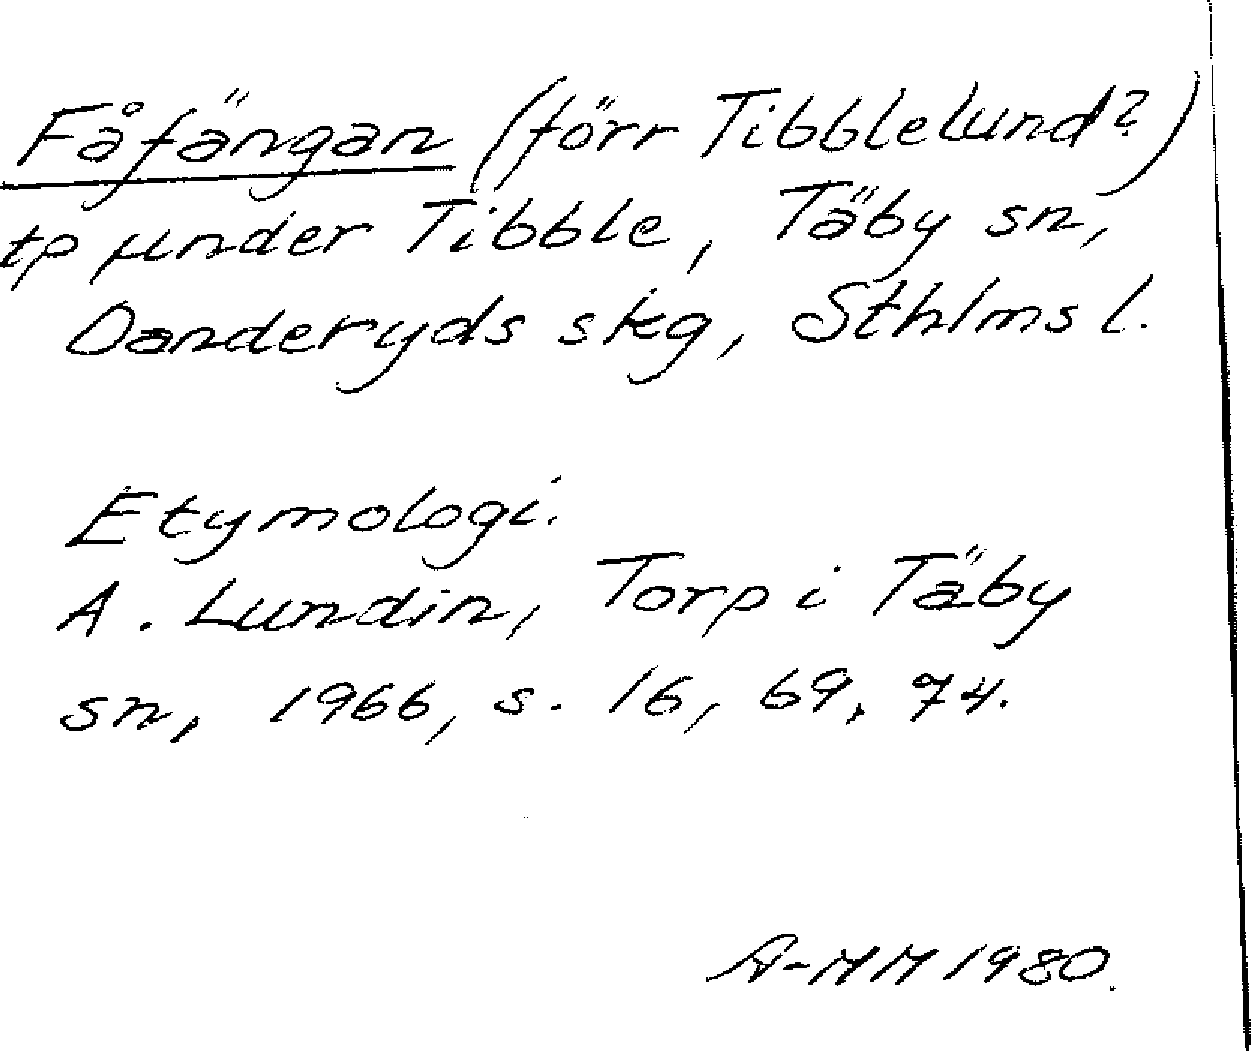 Fåfängan (förr Tibblelund?)
tp under Tibble, Täby sn,
Danderyds skg, Sthlms l.
Etymologi.
A. Lundin, Torp i Täby
sn, 1966, s. 16, 69, 74.
A-MM 1980.